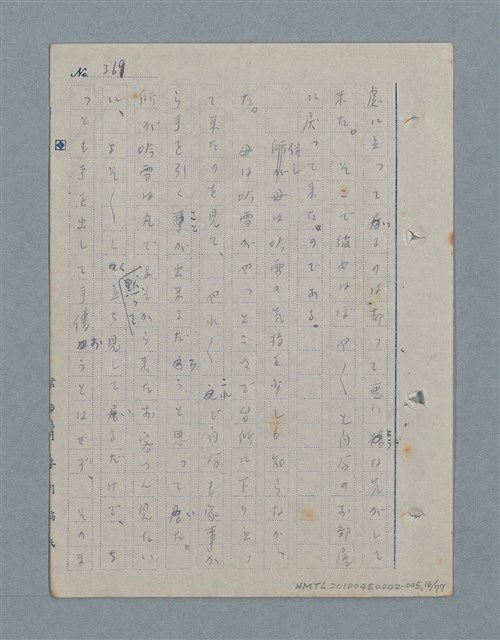 No. 369
處に立って居いるのは却って悪い様ような気がして
来た。そこで彼女はぼや〱と自分のお部屋
に戻って来た。のである。
併し所が母は吟雪の気持を少しも知らなかっ
た。母は吟雪がやっとこさで台所に下り立っ
て来たのを見て、やれ〱之これで自分も家事か
ら手を引く事ことが出来るだろうと思って居いた。
所が吟雪は丸でよそから来たお客さん見たい
に、よそ〱しく黙って立ち見して居いるだけで、ち
っとも手を出して手傳おうとはせず、そのま
NMTL20100480002-005,16/77